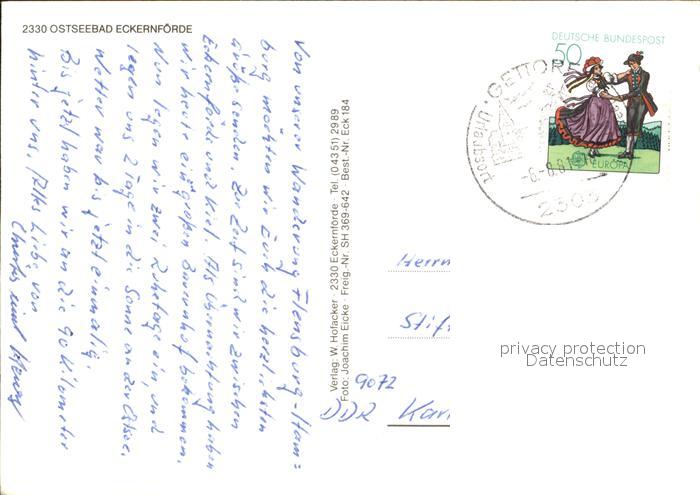 2330 OSTSEEBAD ECKERNFÖRDE
Von unserer Wanderung Flensburg-Ham=
burg möchten wir Euch die herzlichsten
Grüße senden. Zur Zeit sind wir zwischen
Eckernförde und Kiel. Als Übernachtung haben
wir heute ein großen Bauernhof bekommen.
Nun legen wir zwei Ruhetage ein, und
legen uns 2 Tage in die Sonne an der Ostsee.
Wetter war bis jetzt einmalig.
Bis jetzt haben wir an die 90 Kilometer
hinter uns. Alles Liebe von
und
Verlag: W. Hofacker · 2330 Eckernförde · Tel. (04351) 2989
Foto: Joachim Eicke · Freig.-Nr. SH 369-642 · Best.-Nr. Eck 184
DEUTSCHE BUNDESPOST
50
EUROPA
GETTORF
Urlaubsort
-8.81
2303
Herrn
Stif
9072
DDR Karl
privacy protection
Datenschutz